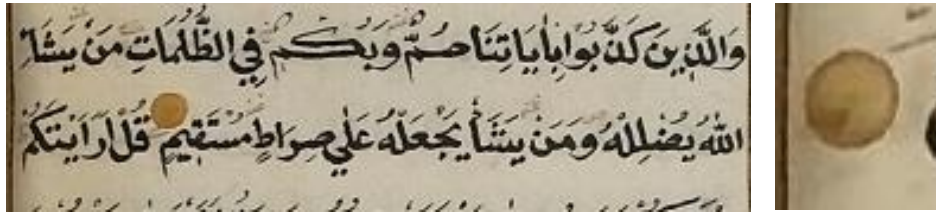 وَالَّذِينَ كَذَّبُوا بِأَيَاتِنَا صُمٌّ وَبُكْمٌ فِي الظُّلُمَاتِ مَنْ يَشَاءِ
اللّٰهُ يُضْلِلْهُ وَمَنْ يَشَأْ يَجْعَلْهُ عَلَي صِرَاطٍ مُسْتَقِيمٍ قُلْ اَرَاَيْتَكُمْ